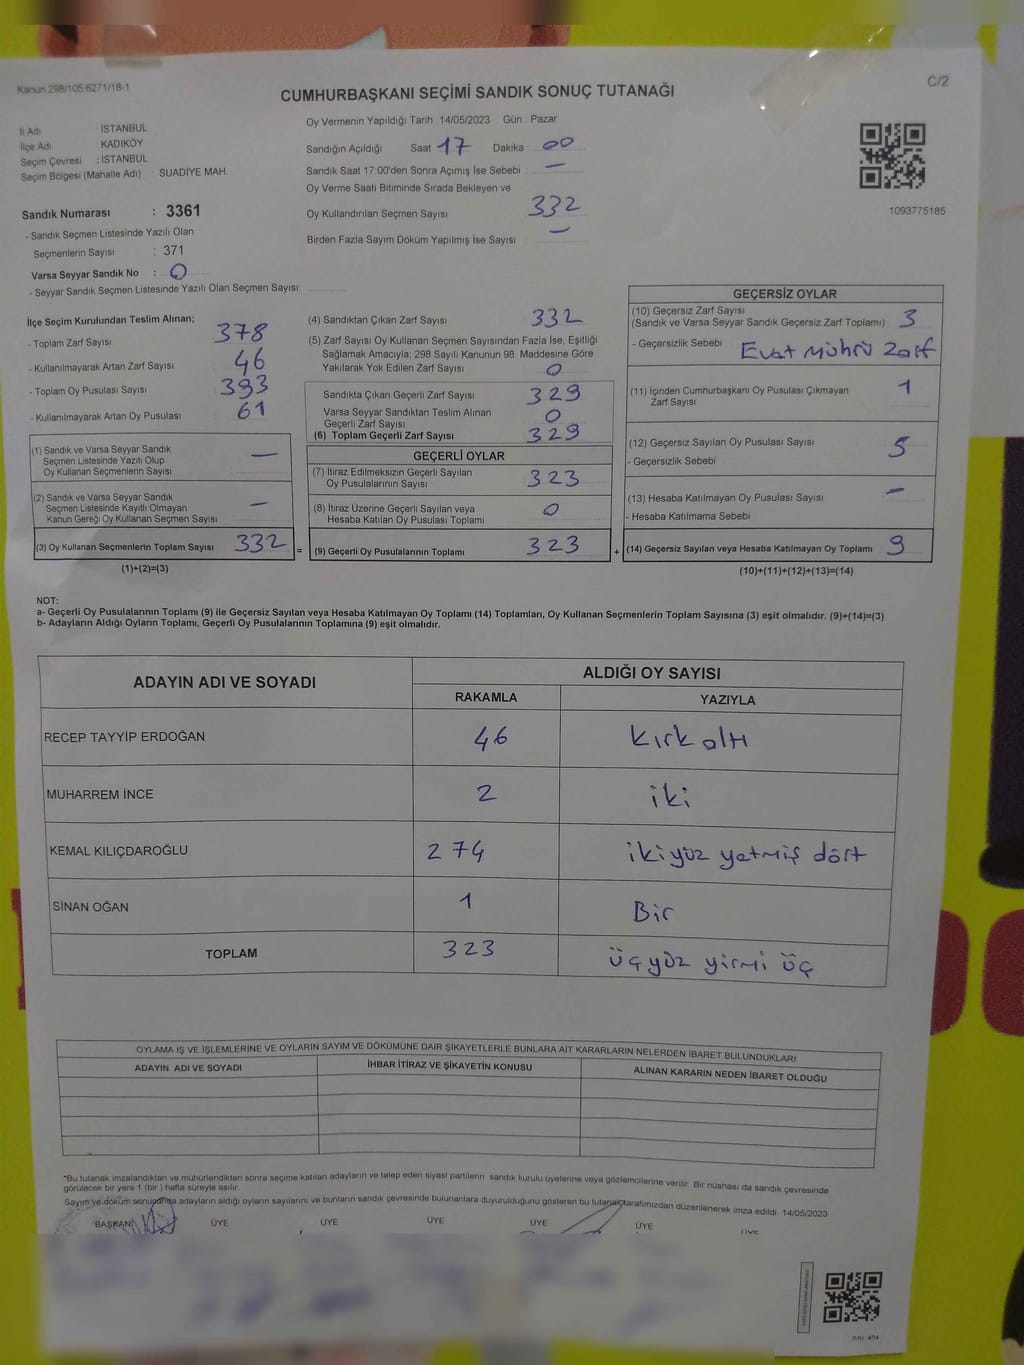 Kanun 298/105;6271/18-1
C/2
CUMHURBAŞKANI SEÇİMİ SANDIK SONUÇ TUTANAĞI
İl Adı İSTANBUL
İlçe Adı KADIKÖY
Seçim Çevresi : İSTANBUL
Seçim Bölgesi (Mahalle Adı) SUADİYE MAH.
Sandık Numarası : 3361
- Sandık Seçmen Listesinde Yazılı Olan
Seçmenlerin Sayısı : 371
Varsa Seyyar Sandık No : 0
- Seyyar Sandık Seçmen Listesinde Yazılı Olan Seçmen Sayısı:
Oy Vermenin Yapıldığı Tarih : 14/05/2023 Gün : Pazar
Sandığın Açıldığı Saat 17 Dakika : 00
Sandık Saat 17:00'den Sonra Açımış İse Sebebi : —
Oy Verme Saati Bitiminde Sırada Bekleyen ve
Oy Kullandırılan Seçmen Sayısı 332
Birden Fazla Sayım Döküm Yapılmış İse Sayısı : —
1093775185
İlçe Seçim Kurulundan Teslim Alınan;
- Toplam Zarf Sayısı 378
- Kullanılmayarak Artan Zarf Sayısı 46
- Toplam Oy Pusulası Sayısı 393
- Kullanılmayarak Artan Oy Pusulası 61
(1) Sandık ve Varsa Seyyar Sandık
Seçmen Listesinde Yazılı Olup
Oy Kullanan Seçmenlerin Sayısı —
(2) Sandık ve Varsa Seyyar Sandık
Seçmen Listesinde Kayıtlı Olmayan
Kanun Gereği Oy Kullanan Seçmen Sayısı —
(3) Oy Kullanan Seçmenlerin Toplam Sayısı 332 =
(1)+(2)=(3)
(4) Sandıktan Çıkan Zarf Sayısı 332
(5) Zarf Sayısı Oy Kullanan Seçmen Sayısından Fazla İse, Eşitliği
Sağlamak Amacıyla, 298 Sayılı Kanunun 98. Maddesine Göre
Yakılarak Yok Edilen Zarf Sayısı 0
Sandıkta Çıkan Geçerli Zarf Sayısı 329
Varsa Seyyar Sandıktan Teslim Alınan
Geçerli Zarf Sayısı 0
(6) Toplam Geçerli Zarf Sayısı 329
GEÇERLİ OYLAR
(7) İtiraz Edilmeksizin Geçerli Sayılan
Oy Pusulalarının Sayısı 323
(8) İtiraz Üzerine Geçerli Sayılan veya
Hesaba Katılan Oy Pusulası Toplamı 0
(9) Geçerli Oy Pusulalarının Toplamı 323 +
GEÇERSİZ OYLAR
(10) Geçersiz Zarf Sayısı
(Sandık ve Varsa Seyyar Sandık Geçersiz Zarf Toplamı) 3
- Geçersizlik Sebebi Evat Mührü Zarf
(11) İçinden Cumhurbaşkanı Oy Pusulası Çıkmayan
Zarf Sayısı 1
(12) Geçersiz Sayılan Oy Pusulası Sayısı 5
- Geçersizlik Sebebi
(13) Hesaba Katılmayan Oy Pusulası Sayısı —
- Hesaba Katılmama Sebebi
(14) Geçersiz Sayılan veya Hesaba Katılmayan Oy Toplamı 9
(10)+(11)+(12)+(13)=(14)
NOT:
a- Geçerli Oy Pusulalarının Toplamı (9) ile Geçersiz Sayılan veya Hesaba Katılmayan Oy Toplamı (14) Toplamları, Oy Kullanan Seçmenlerin Toplam Sayısına (3) eşit olmalıdır. (9)+(14)=(3)
b- Adayların Aldığı Oyların Toplamı, Geçerli Oy Pusulalarının Toplamına (9) eşit olmalıdır.
ADAYIN ADI VE SOYADI ALDIĞI OY SAYISI
RAKAMLA YAZIYLA
RECEP TAYYİP ERDOĞAN 46 kırk altı
MUHARREM İNCE 2 iki
KEMAL KILIÇDAROĞLU 274 ikiyüz yetmiş dört
SİNAN OĞAN 1 Bir
TOPLAM 323 üçyüz yirmi üç
OYLAMA İŞ VE İŞLEMLERİNE VE OYLARIN SAYIM VE DÖKÜMÜNE DAİR ŞİKAYETLERLE BUNLARA AİT KARARLARIN NELERDEN İBARET BULUNDUKLARI
ADAYIN ADI VE SOYADI İHBAR İTİRAZ VE ŞİKAYETİN KONUSU ALINAN KARARIN NEDEN İBARET OLDUĞU
*Bu tutanak imzalandıktan ve mühürlendikten sonra seçime katılan adayların ve talep eden siyasi partilerin sandık kurulu üyelerine veya gözlemcilerine verilir. Bir nüshası da sandık çevresinde
görülecek bir yere 1 (bir) hafta süreyle asılır.
Sayım ve döküm sonucunda adayların aldığı oyların sayılarını ve bunların sandık çevresinde bulunanlara duyurulduğunu gösteren bu tutanak tarafımızdan düzenlenerek imza edildi. 14/05/2023
BAŞKAN ÜYE ÜYE ÜYE ÜYE ÜYE ÜYE